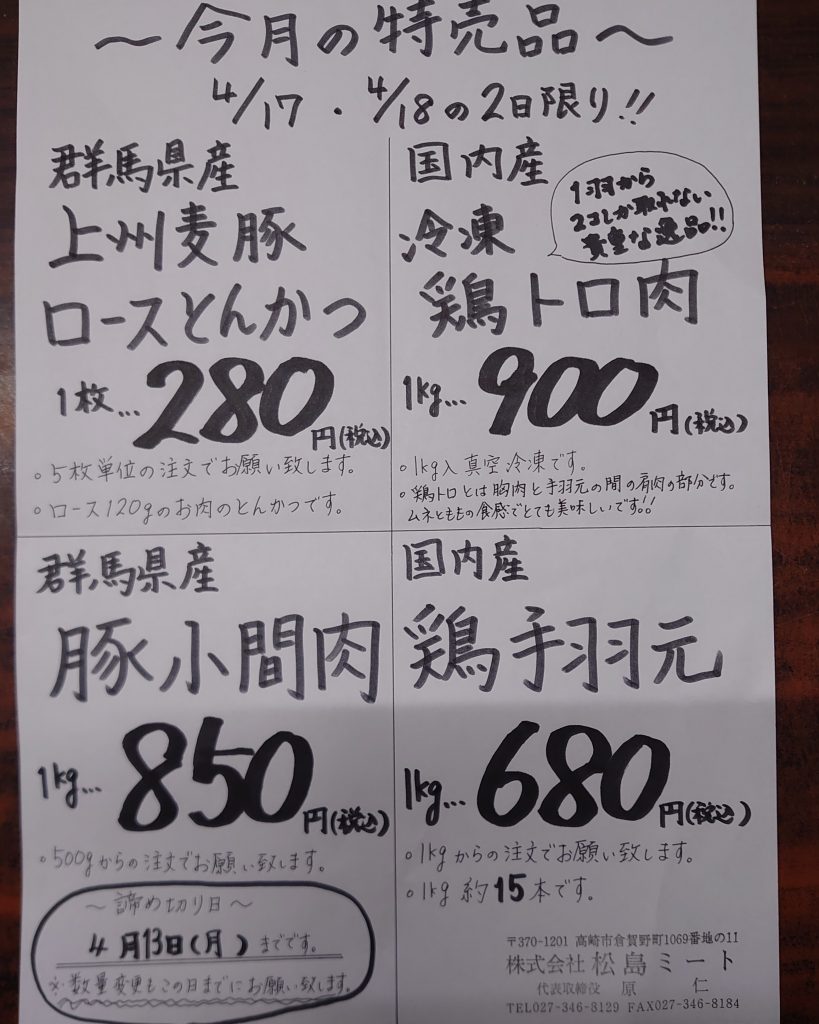 ～今月の特売品～
4/17・4/18の2日限り!!
群馬県産
上州麦豚
ロースとんかつ
1枚…280円(税込)
○5枚単位の注文でお願い致します。
○ロース120gのお肉のとんかつです。
国内産
冷凍
鶏トロ肉
1羽から
2コしか取れない
貴重な逸品!!
1kg…900円(税込)
○1kg入真空冷凍です。
○鶏トロとは胸肉と手羽元の間の肩肉の部分です。
ムネとももの食感でとても美味しいです!!
群馬県産
豚小間肉
1kg…850円(税込)
○500gからの注文でお願い致します。
～諦め切り日～
4月13日(月)までです。
※数量変更もこの日までにお願い致します。
国内産
鶏手羽元
1kg…680円(税込)
○1kgからの注文でお願い致します。
○1kg約15本です。
〒370-1201 高崎市倉賀野町1069番地の11
株式会社 松島ミート
代表取締役 原 仁
TEL027-346-8129 FAX027-346-8184